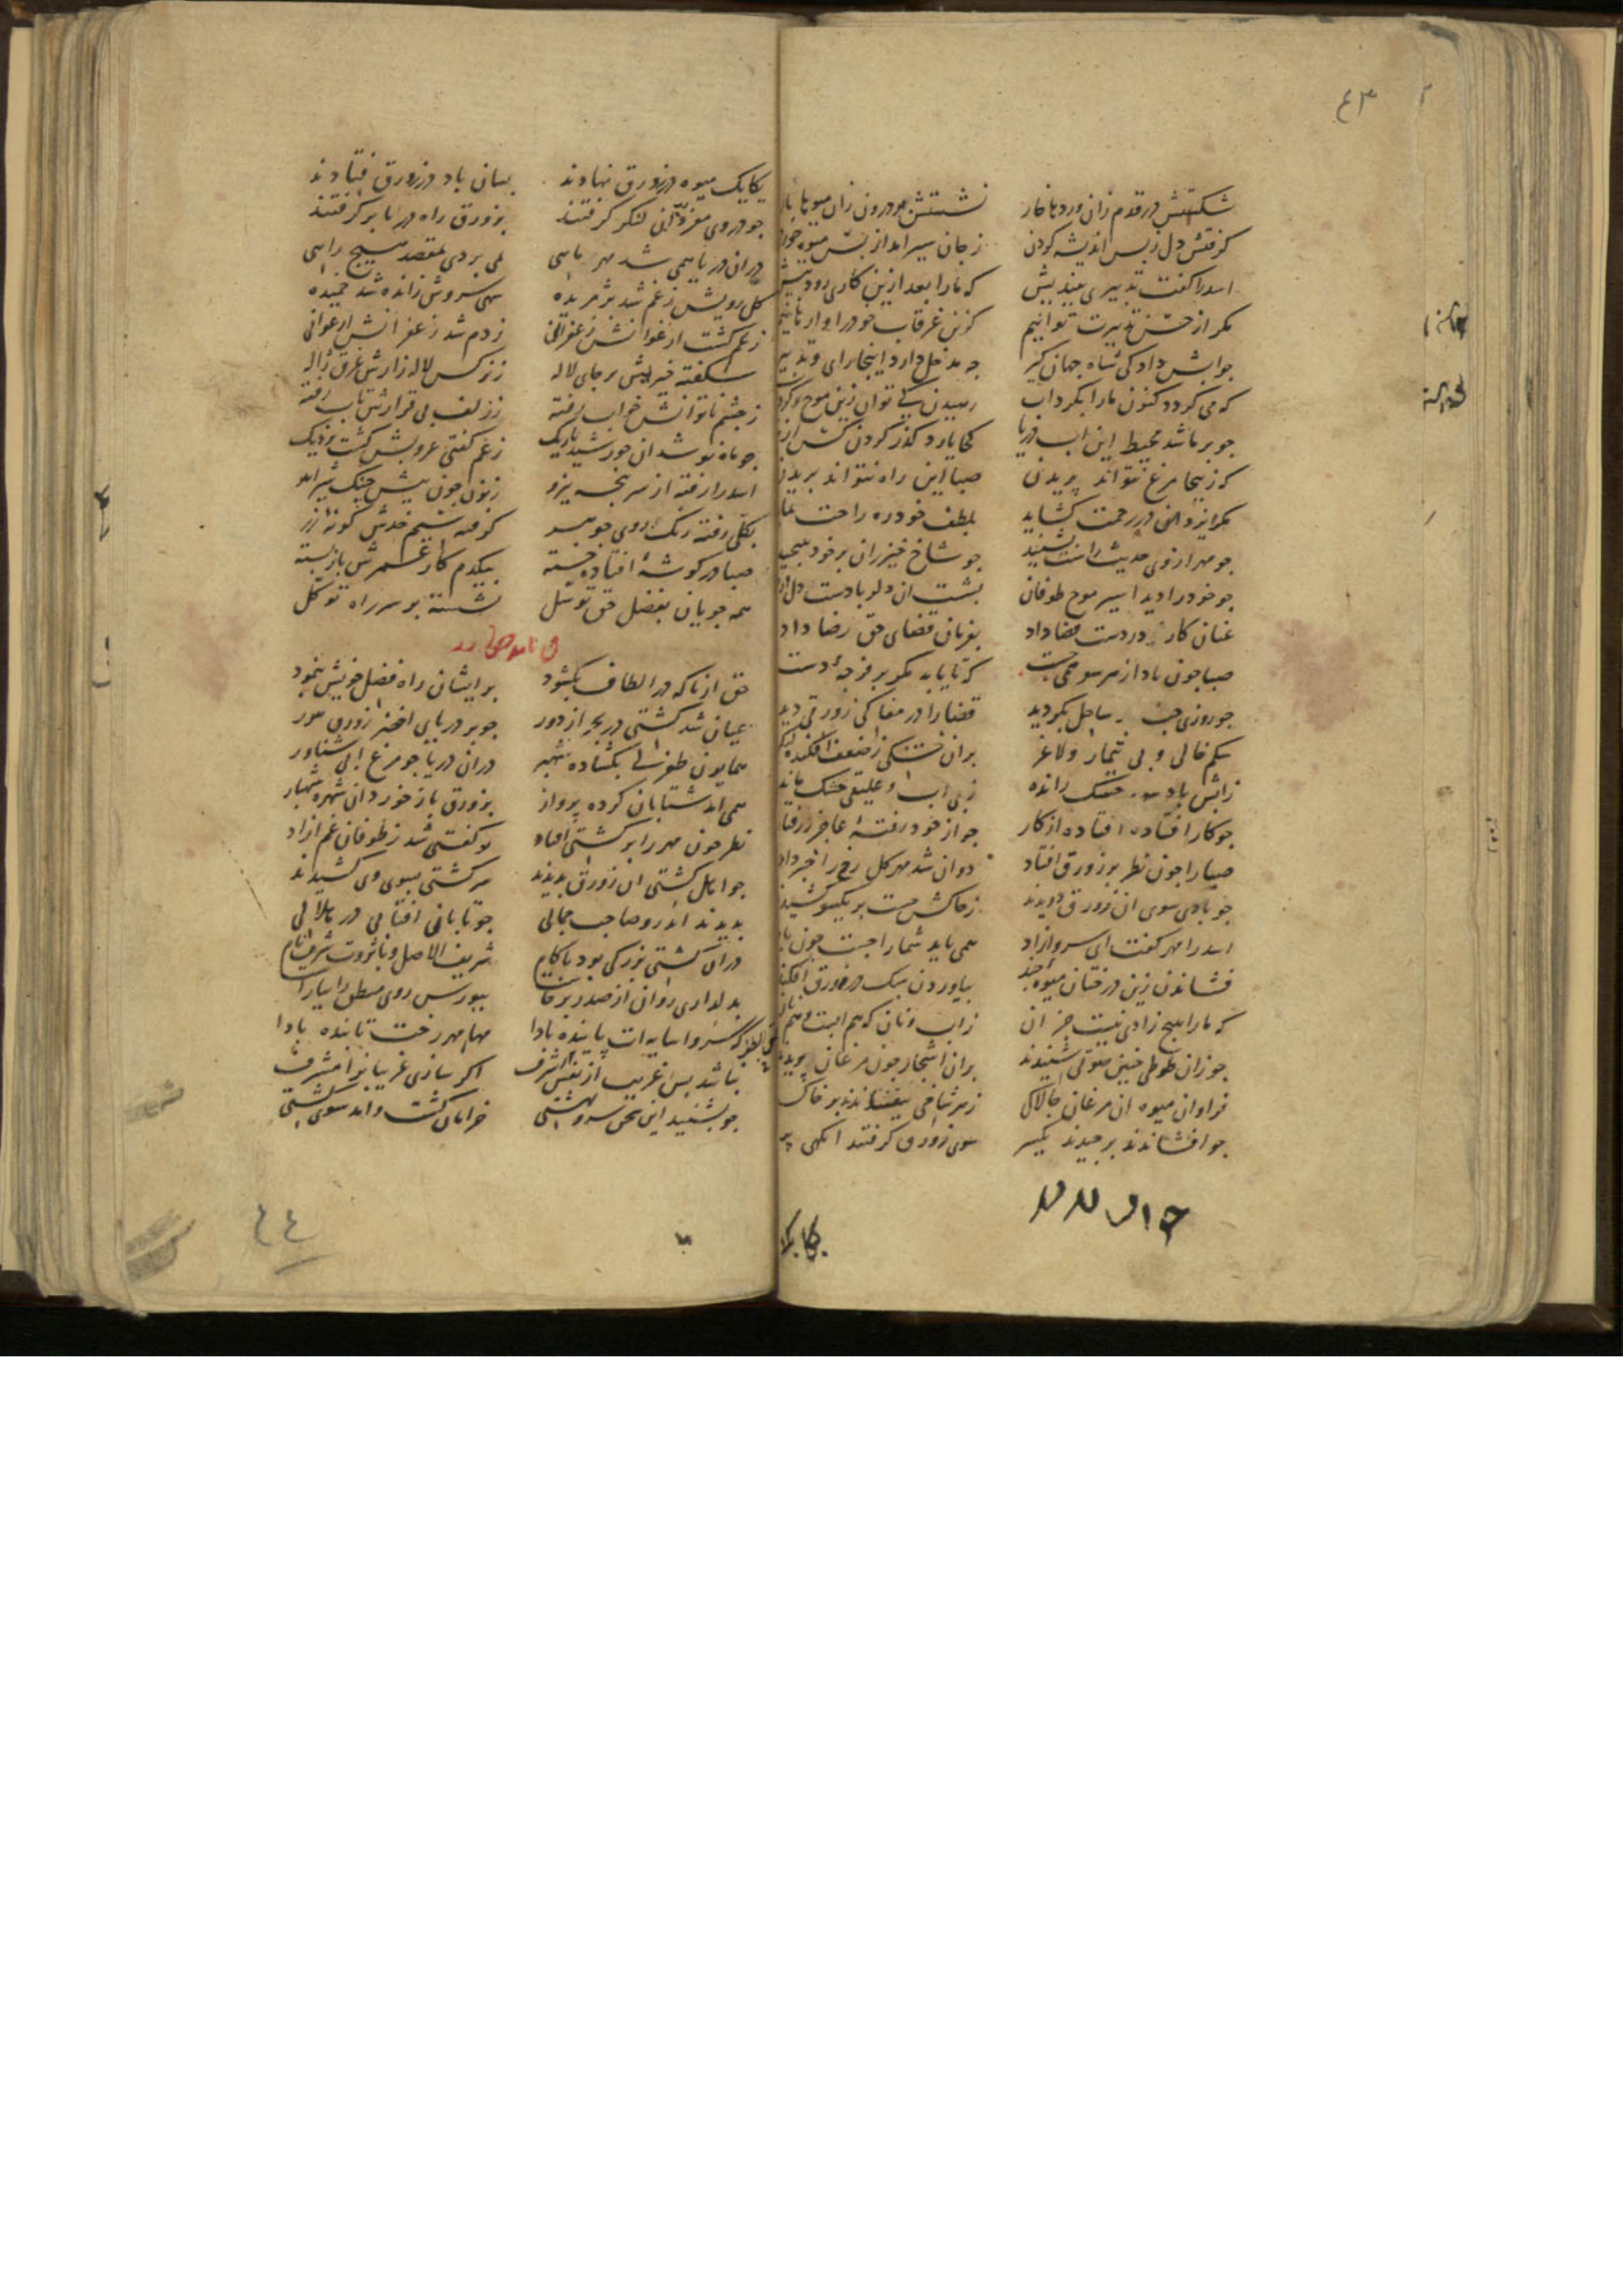 ٤٣
شکستش در قدم زان وردها خار نشستش در درون زان میوها بار
گرفتش دل ز بس اندیشه کردن ز جان سیر امد از بس میوه خوردن
اسد را گفت تدبیری بیندیش که ما را بعد ازین کاری رود پیش
مگر از حسن تدبیرت توانیم کزین غرقاب خود را وارهانیم
جوابش داد کی شاه جهان گیر چه مدخل دارد اینجا رای و تدبیر
که می گردد کنون ما را بگرداب رسیدن کی توان زین موج
جو بر ما شد محیط این اب دریا کجا یارد گذر کردن کس از
که زینجا مرغ نتواند پریدن صبا این راه نتواند بریدن
مگر ایزد در رحمت گشاید بلطف خود ره راحت نماید
جو مهر از وی حدیث راست بشنید جو شاخ خیزران بر خود بپیچید
جو خود را دید اسیر موج طوفان بشست ان دلربا دست دل از
عنان کار در دست قضا داد بفرمان قضای حق رضا داد
صبا جون باد از هر سو همی جست که تا یابد مگر بر فرجه دست
جو روزی جند ساحل بگردید قضا را در مغاکی زورقی دید
شکم خالی و بی تیمار و لاغر بران خشکی ز ضعف افکنده لنگر
ز ابش باد خشک رانده ز بی اب و علیقی خشک مانده
جو کار افتاده افتاده از کار جو از خود رفته عاجز ز رفتار
صبا را جون نظر بر زورق افتاد دوان شد مهر گل رخ را خبر داد
جو بادی سوی ان زورق دویدند ز خاکش جست بر یکسو کشیدند
اسد را مهر گفت ای سرو ازاد همی باید شما را جست جون باد
فشاندن زین درختان میوه جند بیاوردن سبک در زورق افکند
که ما را هیچ زادی نیست جز ان ز اب و نان که هم ابست و هم نان
جو زان طوطی جنین قولی شنیدند بران اشجار جون مرغان پریدند
فراوان میوه ان مرغان جالاک ز هر شاخی بیفشاندند بر خاک
جو افشاندند بر جیدند یکسر سوی زورق گرفتند انگهی پر
یکایک
یکایک میوه در زورق نهادند بسان باد در زورق فتادند
جو در وی لنگر گرفتند بزورق راه دریا بر گرفتند
دران دریا همی شد مهر ماهی نمی بردی بمقصد هیچ راهی
گل رویش ز غم شد پژمریده سهی سروش ز انده شد خمیده
ز غم گشت ارغوانش زعفرانی ز دم شد زعفرانش ارغوانی
شکفته خیریش بر جای لاله ز نرگس لاله زارش غرق ژاله
ز جشم ناتوانش خواب رفته ز زلف بی قرارش تاب رفته
جو ماه نو شد ان خورشید باریک ز غم گفتی عرویش گشت نزدیک
اسد را رفته از سر پنجه نیرو زبون جون پیش جنگ شیر اهو
بکلی رفته رنگ روی جوهر گرفته سیم خدش گونه زر
صبا در گوشه افتاده خسته بیکدم کار عمرش باز بسته
همه جویان بفضل حق توسل نشسته بر سر راه توکل
حق از ناگه در الطاف بگشود بر ایشان راه فضل خویش بنمود
عیان شد کشتی در بحر از دور جو بر دریای اخضر زورق هور
همایون طغرلی بگشاده شهپر دران دریا جو مرغ ابی شناور
همی امد شتابان کرده پرواز بزورق باز خورد ان شهره شهباز
نظر جون مهر را بر کشتی افتاد تو گفتی شد ز طوفان غم ازاد
جو اهل کشتی ان زورق بدیدند سر کشتی بسوی وی کشیدند
بدیدند اندرو صاحب جمالی جو تابانی افتابی در هلالی
دران کشتی بزرگی بود با کام شریف الاصل و با ثروت شرف نام
بدلداری روان از صدر برخاست بپورس روی منطق را بیاراست
که سروا سایه ات پاینده بادا مها مهر رخت تابنده بادا
نباشد بس غریب از نفس اشرف اگر سازی غریبانرا مشرف
جو بشنید این سخن سرو بهشتی خرامان گشت و امد سوی کشتی
٤٤